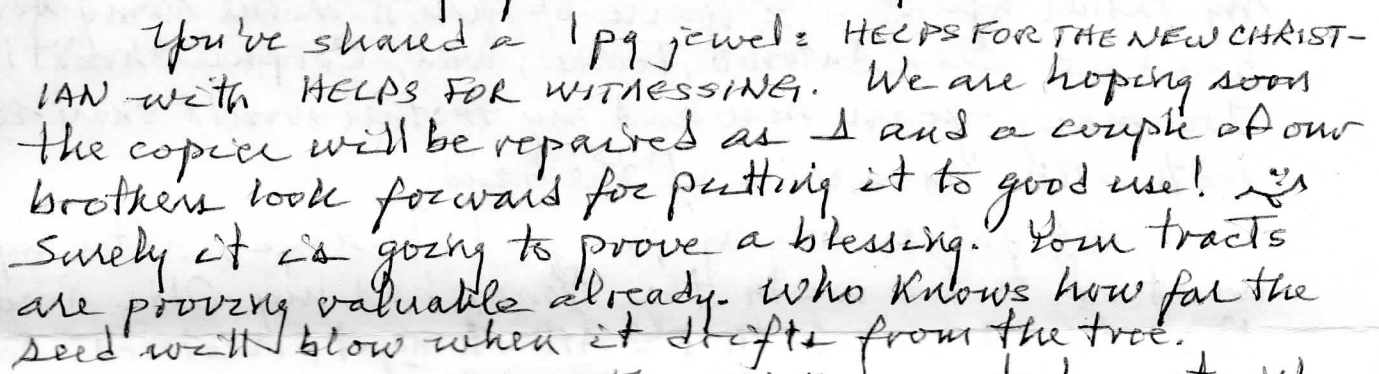 You've shared a 1 pg jewel: HELPS FOR THE NEW CHRIST-
IAN with HELPS FOR WITNESSING. We are hoping soon
the copier will be repaired as I and a couple of our
brothers look forward for putting it to good use!
Surely it is going to prove a blessing. Your tracts
are proving valuable already. Who knows how far the
seed will blow when it drifts from the tree.